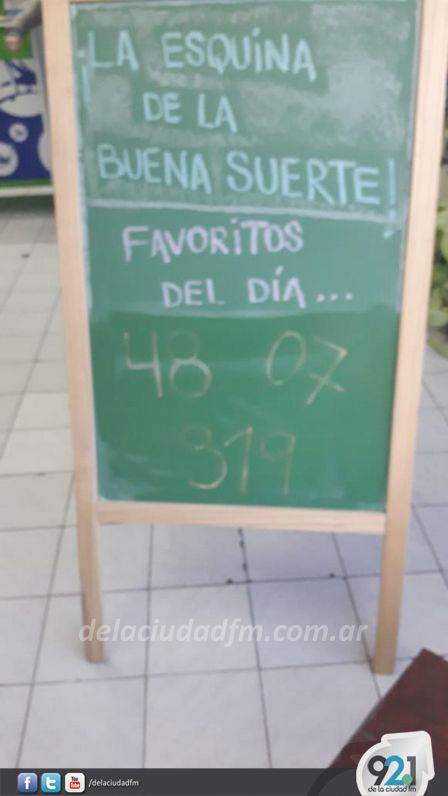 LA ESQUINA
DE LA
BUENA SUERTE!
FAVORITOS
DEL DÍA...
48 07
319
delaciudadfm.com.ar
You Tube /delaciudadfm
92.1
de la ciudad fm